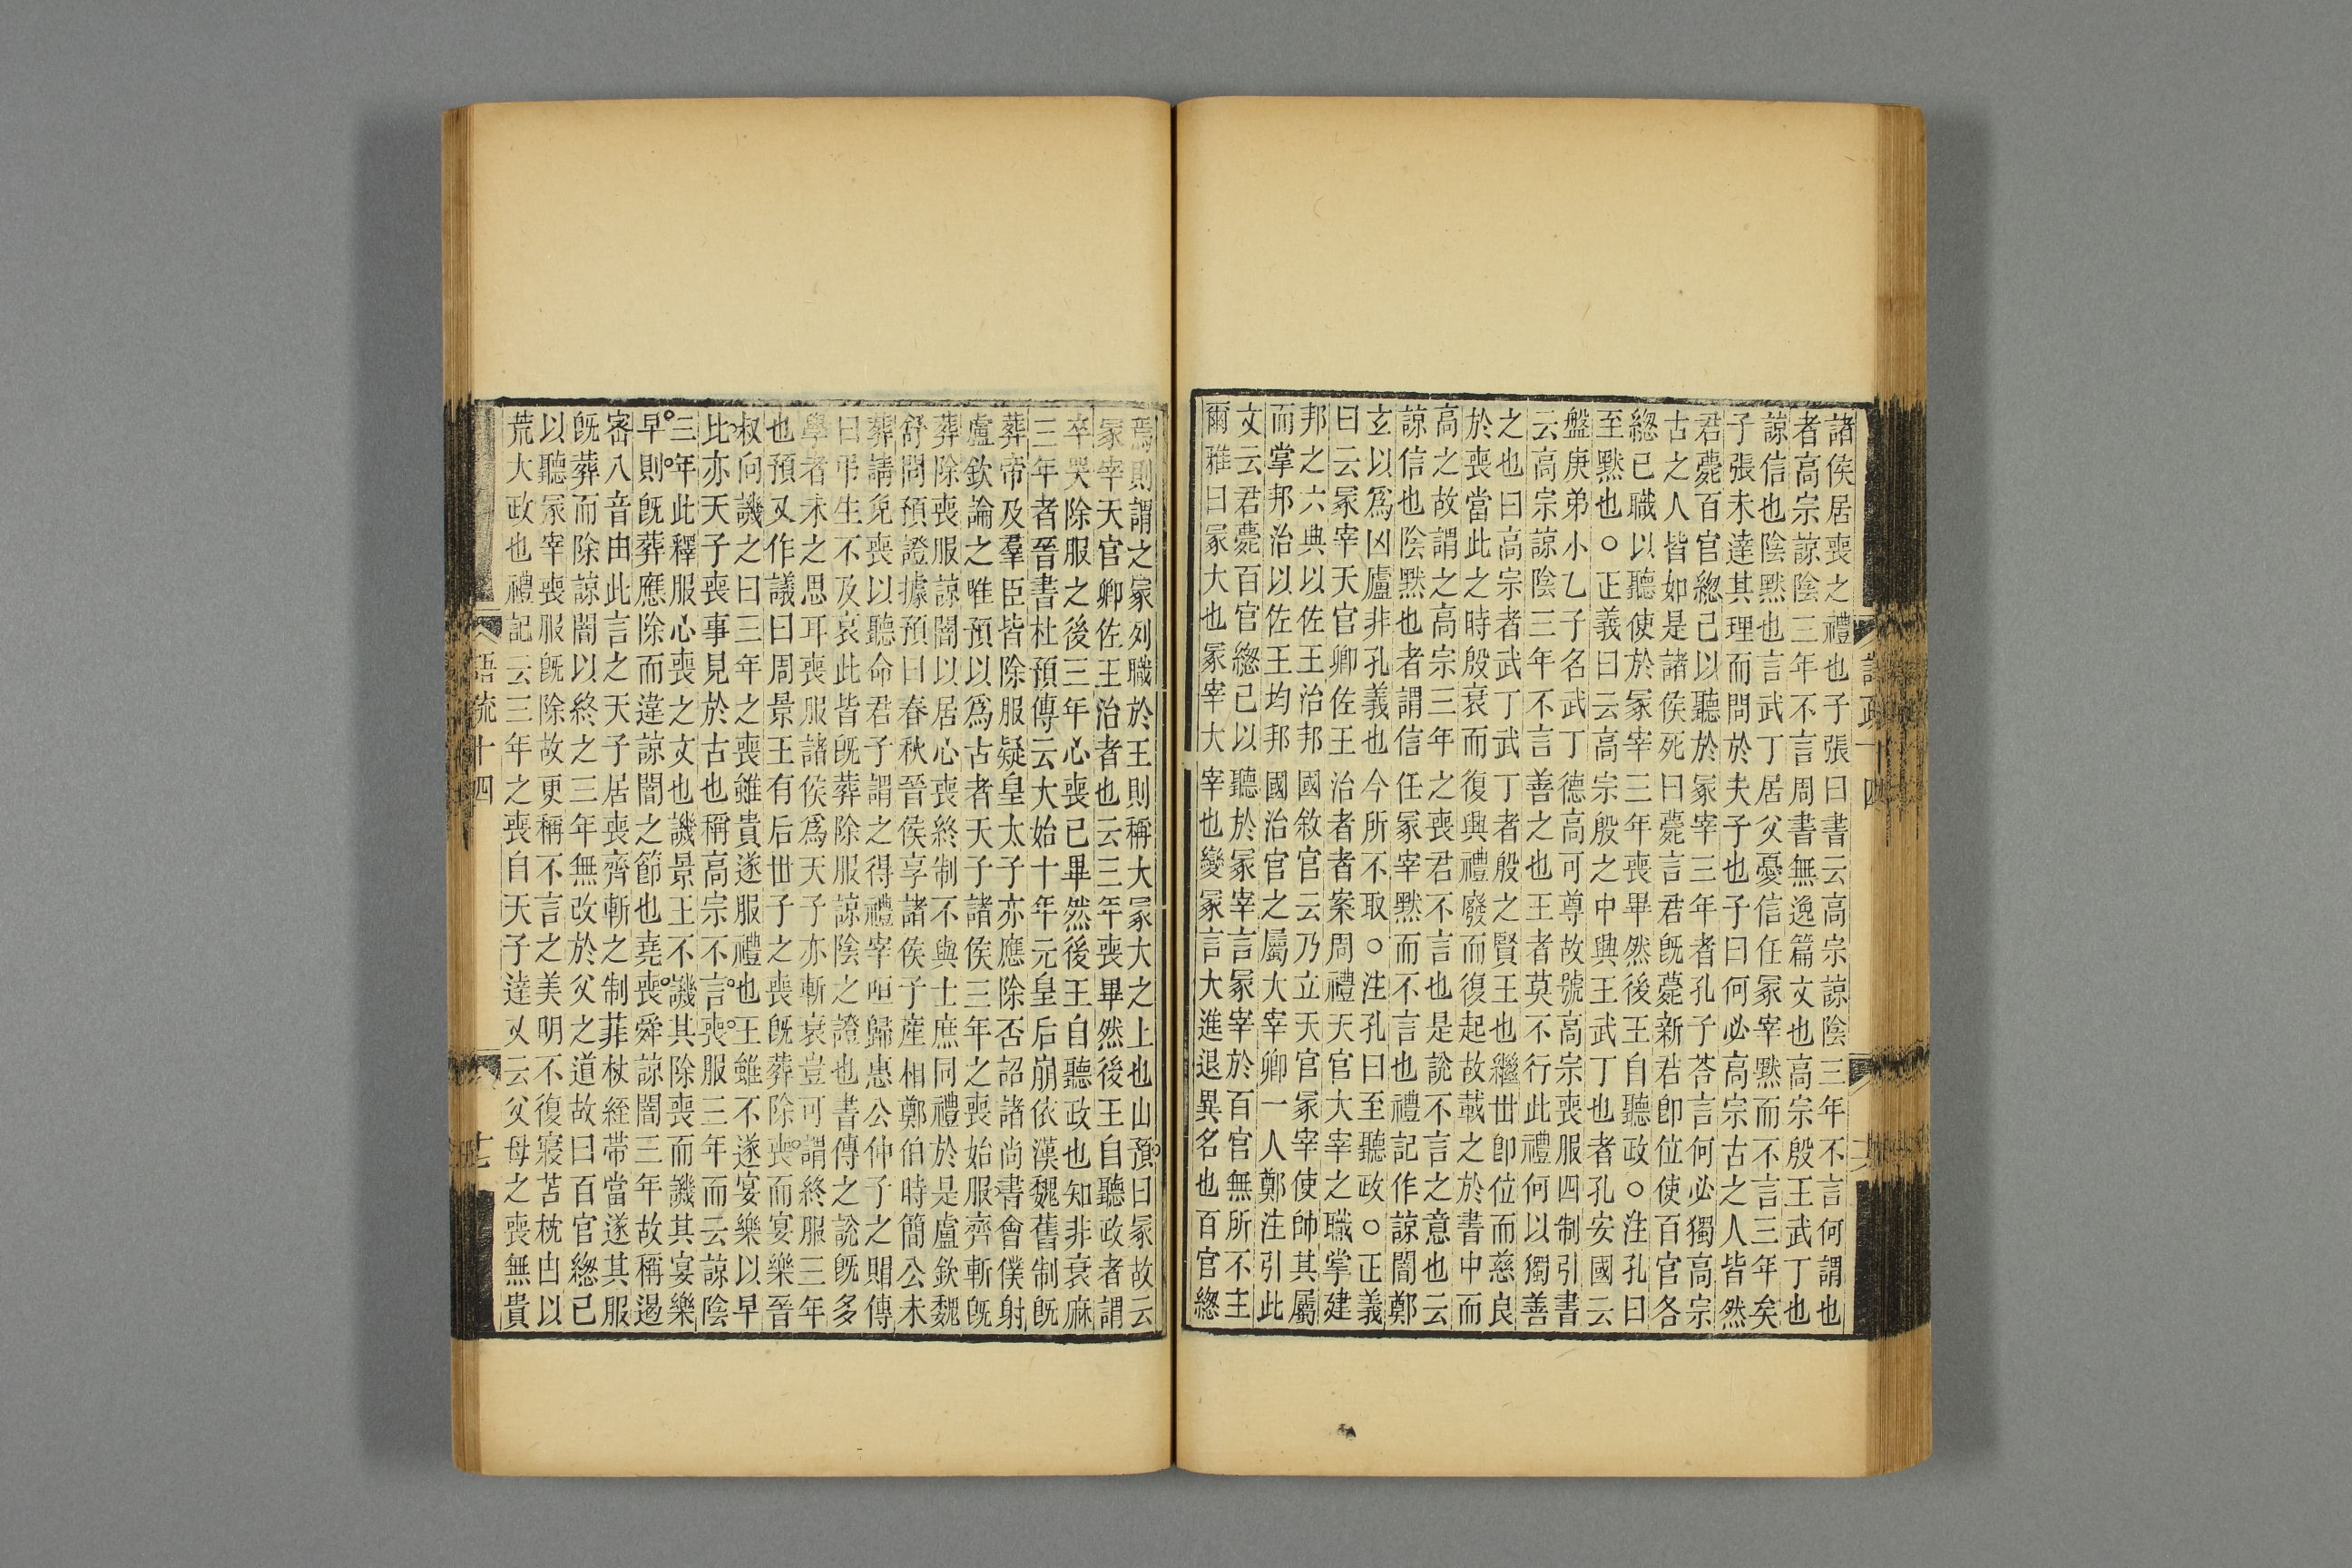 諸侯居喪之禮也子張曰書云高宗諒陰三年不言何謂也
者高宗諒陰三年不言周書無逸篇文也高宗殷王武丁也
諒信也陰默也言武丁居父憂信任冢宰默而不言三年矣
子張未達其理而問於夫子也子曰何必高宗古之人皆然
君薨百官緫己以聽於冢宰三年者孔子荅言何必獨高宗
古之人皆如是諸侯死曰薨言君旣薨新君卽位使百官各
緫己職以聽使於冢宰三年喪畢然後王自聽政○注孔曰
至默也○正義曰云高宗殷之中興王武丁也者孔安國云
盤庚弟小乙子名武丁德高可尊故號高宗喪服四制引書
云高宗諒陰三年不言善之也王者莫不行此禮何以獨善
之也曰高宗者武丁武丁者殷之賢王也繼世卽位而慈良
於喪當此之時殷衰而復興禮廢而復起故載之於書中而
高之故謂之高宗三年之喪君不言也是說不言之意也云
諒信也陰默也者謂信任冢宰默而不言也禮記作諒闇鄭
玄以爲凶廬非孔義也今所不取○注孔曰至聽政○正義
曰云冢宰天官卿佐王治者者案周禮天官大宰之職掌建
邦之六典以佐王治邦國敘官云乃立天官冢宰使帥其屬
而掌邦治以佐王均邦國治官之屬大宰卿一人鄭注引此
文云君薨百官緫己以聽於冢宰言冢宰於百官無所不主
爾雅曰冢大也冢宰大宰也變冢言大進退異名也百官緫
語疏十四
焉則謂之冢列職於王則稱大冢大之上也山預曰冢故云
冢宰天官卿佐王治者也云三年喪畢然後王自聽政者謂
卒哭除服之後三年心喪已畢然後王自聽政也知非衰麻
三年者晉書杜預傳云大始十年元皇后崩依漢魏舊制旣
葬帝及羣臣皆除服疑皇太子亦應除否詔諸尚書會僕射
盧欽論之唯預以爲古者天子諸侯三年之喪始服齊斬旣
葬除喪服諒闇以居心喪終制不與士庶同禮於是盧欽魏
舒問預證據預曰春秋晉侯享諸侯子産相鄭伯時簡公未
葬請免喪以聽命君子謂之得禮宰咺歸惠公仲子之賵傳
曰弔生不及哀此皆旣葬除服諒陰之證也書傳之說旣多
學者未之思耳喪服諸侯爲天子亦斬衰豈可謂終服三年
也預又作議曰周景王有后世子之喪旣葬除喪而宴樂晉
叔向譏之曰三年之喪雖貴遂服禮也王雖不遂宴樂以早
比亦天子喪事見於古也稱高宗不言喪服三年而云諒陰
三年此釋服心喪之文也譏景王不譏其除喪而譏其宴樂
早則旣葬應除而違諒闇之節也堯喪舜諒闇三年故稱遏
密八音由此言之天子居喪齊斬之制菲杖絰帶當遂其服
旣葬而除諒闇以終之三年無改於父之道故曰百官緫己
以聽冢宰喪服旣除故更稱不言之美明不復寢苫枕凷以
荒大政也禮記云三年之喪自天子達又云父母之喪無貴
語流十四